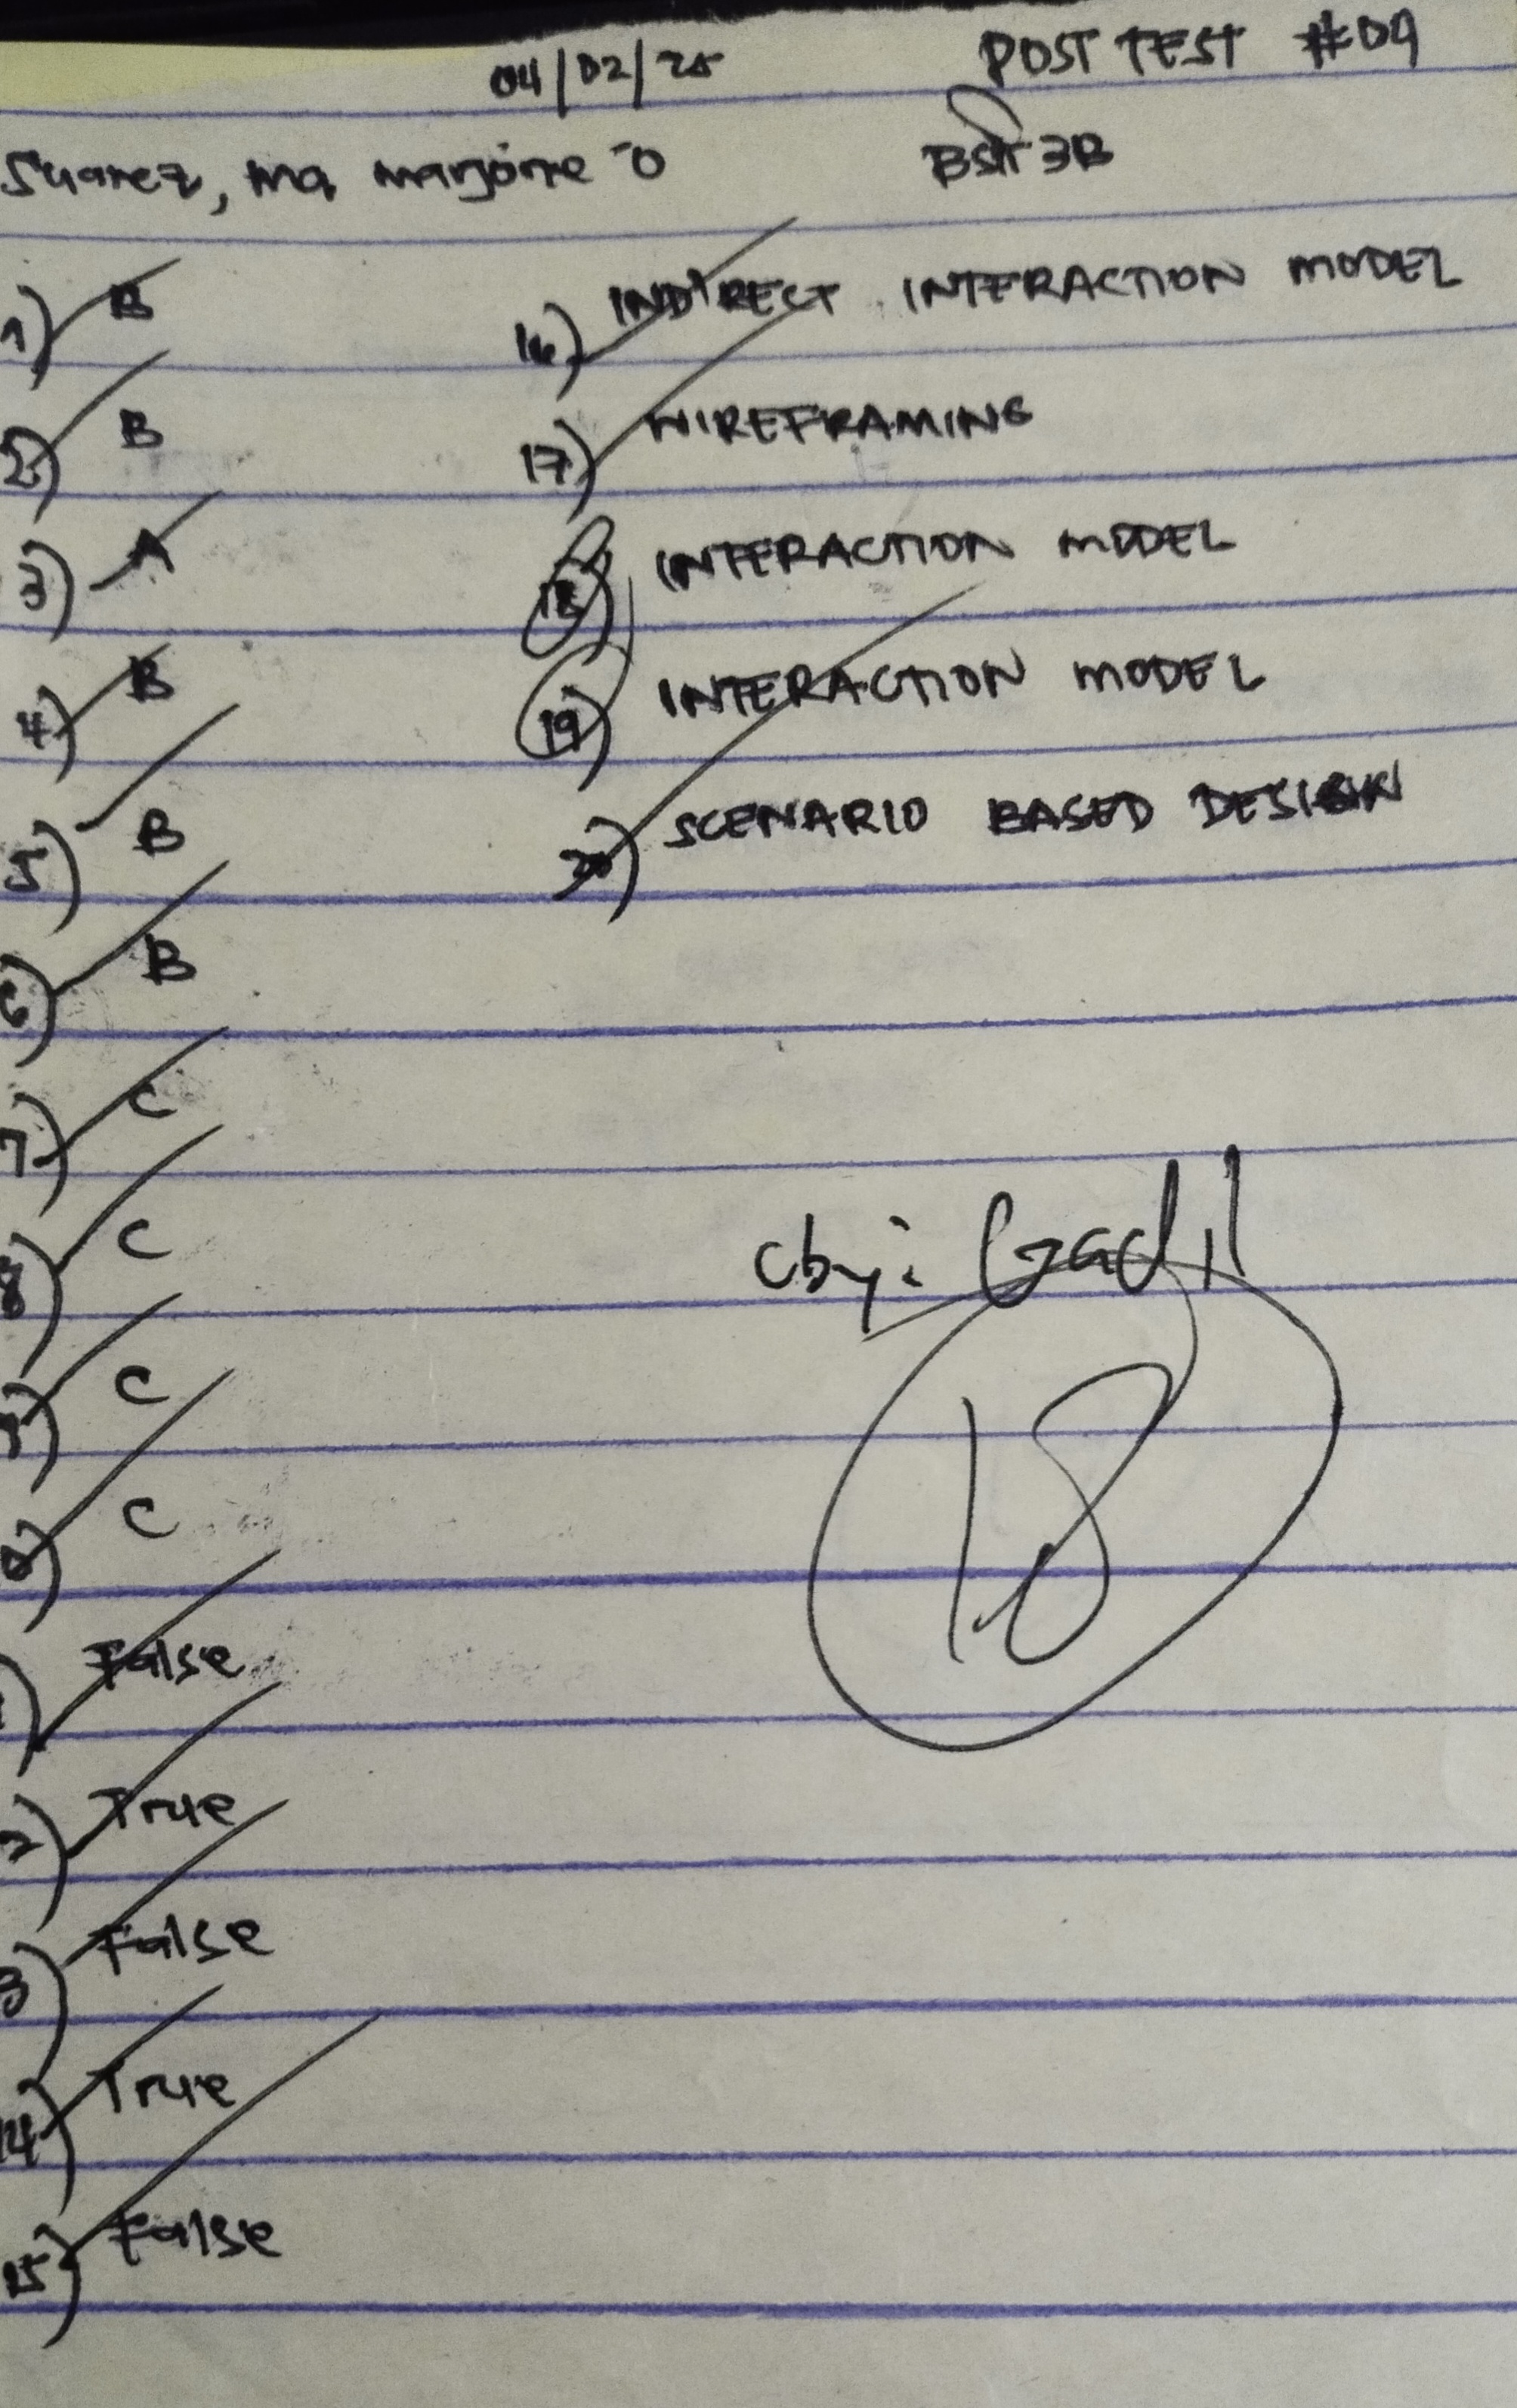 04/02/25 POST TEST #04
Suarez, ma marjorie O BSIT 3B
1) B
2) B
3) A
4) B
5) B
6) B
7) C
8) C
9) C
0) C
1) False
2) True
3) False
14) True
15) False
16) INDIRECT INTERACTION MODEL
17) WIREFRAMING
18) INTERACTION MODEL
19) INTERACTION MODEL
20) SCENARIO BASED DESIGN
cby: Gadil
18